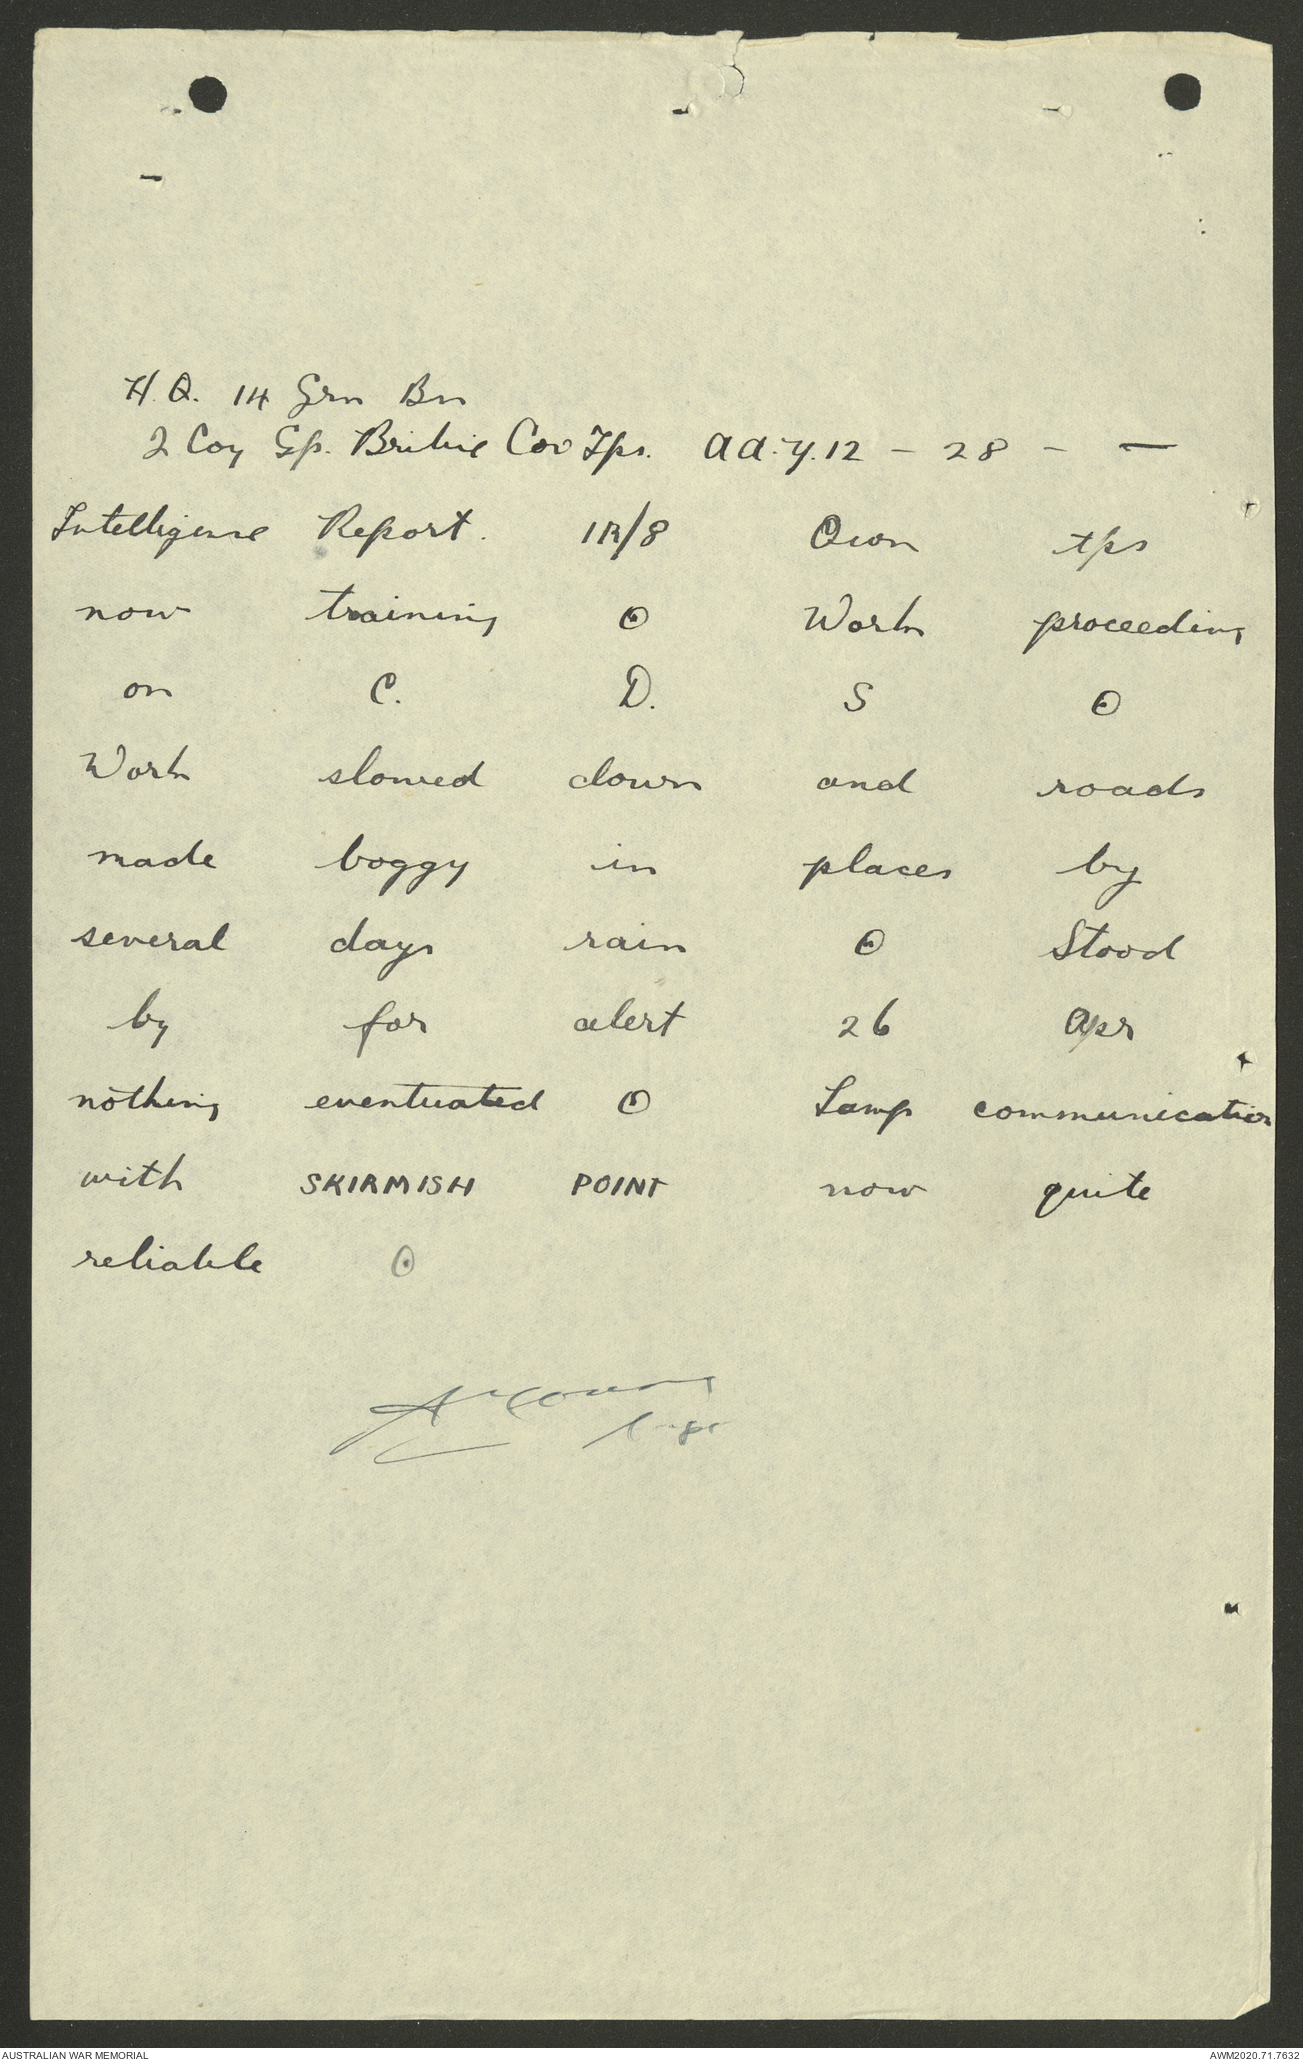 H.Q. 14 Grn Bn
2 Coy Gp. Bribie Cov Tps. AA.Y.12 - 28 - —
Intelligense Report. IR/8 Own tps
now training ⊙ Work proceeding
on C. D. S ⊙
Work slowed down and roads
made boggy in places by
several days rain ⊙ Stood
by for alert 26 Apr
nothing eventuated ⊙ Lamp communication
with SKIRMISH POINT now quite
reliable ⊙
Capt
AUSTRALIAN WAR MEMORIAL AWM2020.71.7632